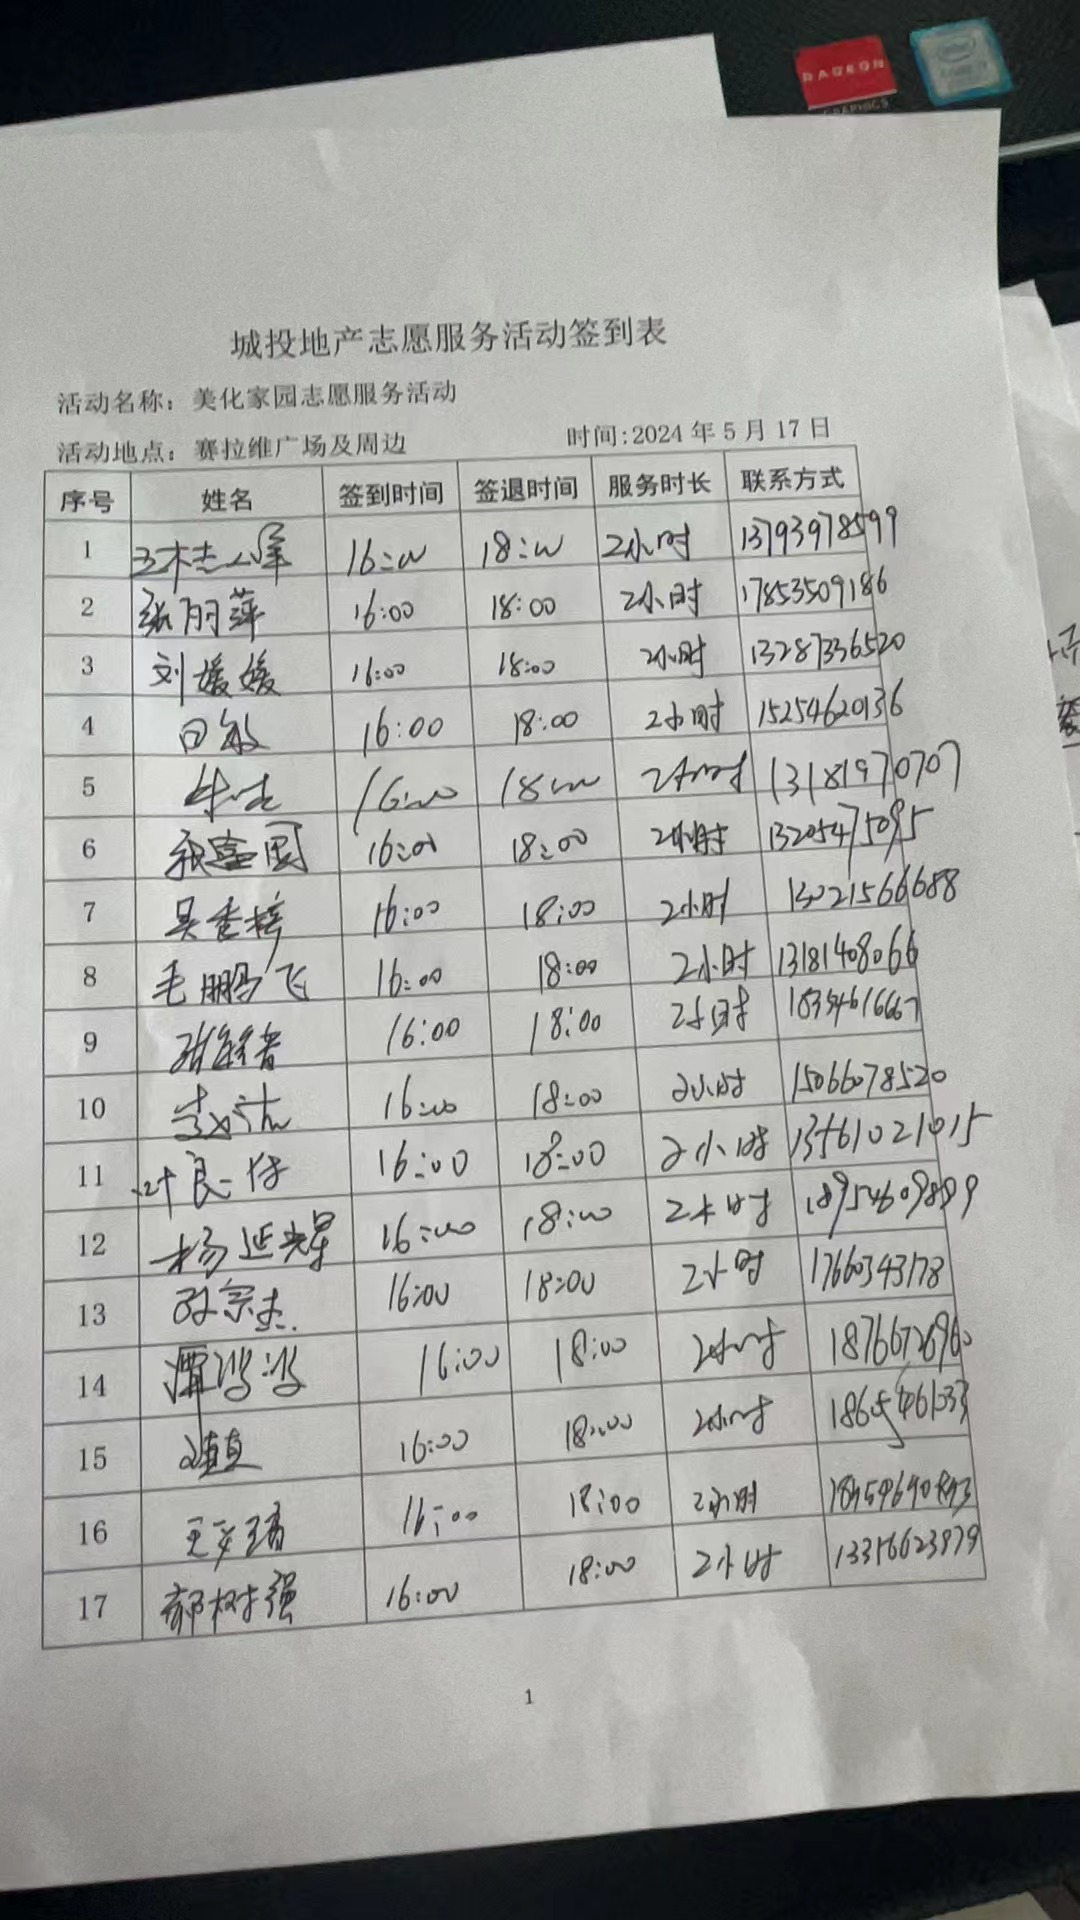 RADEON
GRAPHICS
intel
城投地产志愿服务活动签到表
活动名称：美化家园志愿服务活动
活动地点：赛拉维广场及周边 时间:2024 年 5 月 17 日
序号 姓名 签到时间 签退时间 服务时长 联系方式
1 16:00 18:00 2小时 13793978599
2 张丽萍 16:00 18:00 2小时 17853509186
3 刘媛媛 16:00 18:00 2小时 13287336520
4 田敏 16:00 18:00 2小时 15254620136
5 16:00 18:00 2小时 13181970707
6 张富国 16:00 18:00 2小时 13205475095
7 吴香梅 16:00 18:00 2小时 13021566688
8 毛鹏飞 16:00 18:00 2小时 13181408066
9 16:00 18:00 2小时 18354616667
10 16:00 18:00 2小时 15066078520
11 16:00 18:00 2小时 13561021015
12 杨延辉 16:00 18:00 2小时 18954609899
13 孙宗杰 16:00 18:00 2小时 17660343178
14 16:00 18:00 2小时 18766726960
15 16:00 18:00 2小时
16 16:00 18:00 2小时
17 郝树强 16:00 18:00 2小时
1